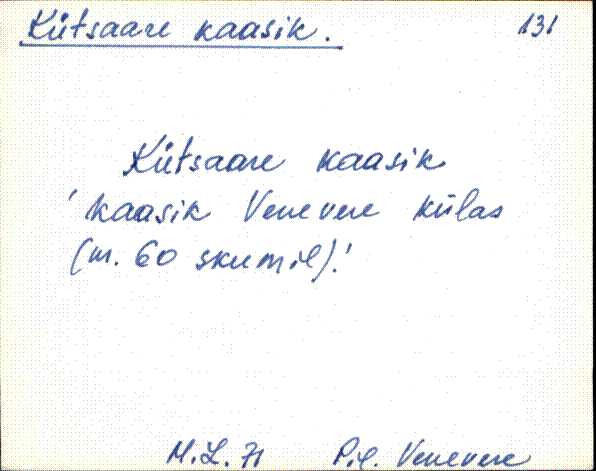 Kütsaare kaasik. 131
Kütsaare kaasik
'kaasik Venevere külas
(m. 60 skemil).'
M.L. 71 Pil. Venevere